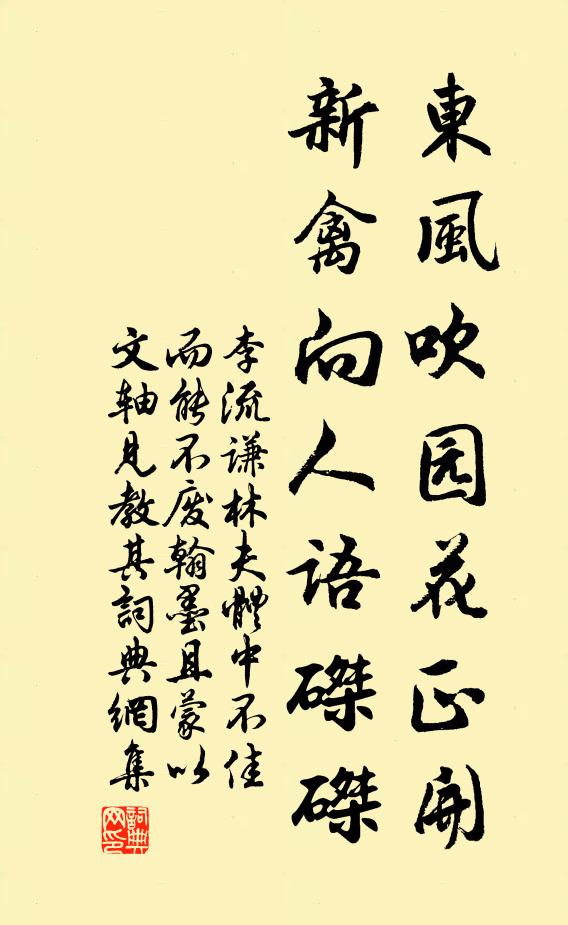 東風吹园花正開
新禽向人語磔磔
李流谦林夫體中不佳
而能不废翰墨且蒙以
文轴見教其詞典網集
詞典网印